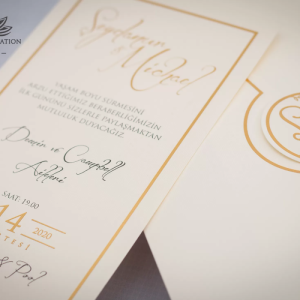 ATION
&
Michael
YAŞAM BOYU SÜRMESİNİ
ARZU ETTİĞİMİZ BERABERLİĞİMİZİN
İLK GÜNÜNÜ SİZLERLE PAYLAŞMAKTAN
MUTLULUK DUYACAĞIZ
Demir ve Campbell
SAAT 19.00
14
2020
TESİ
& Pool